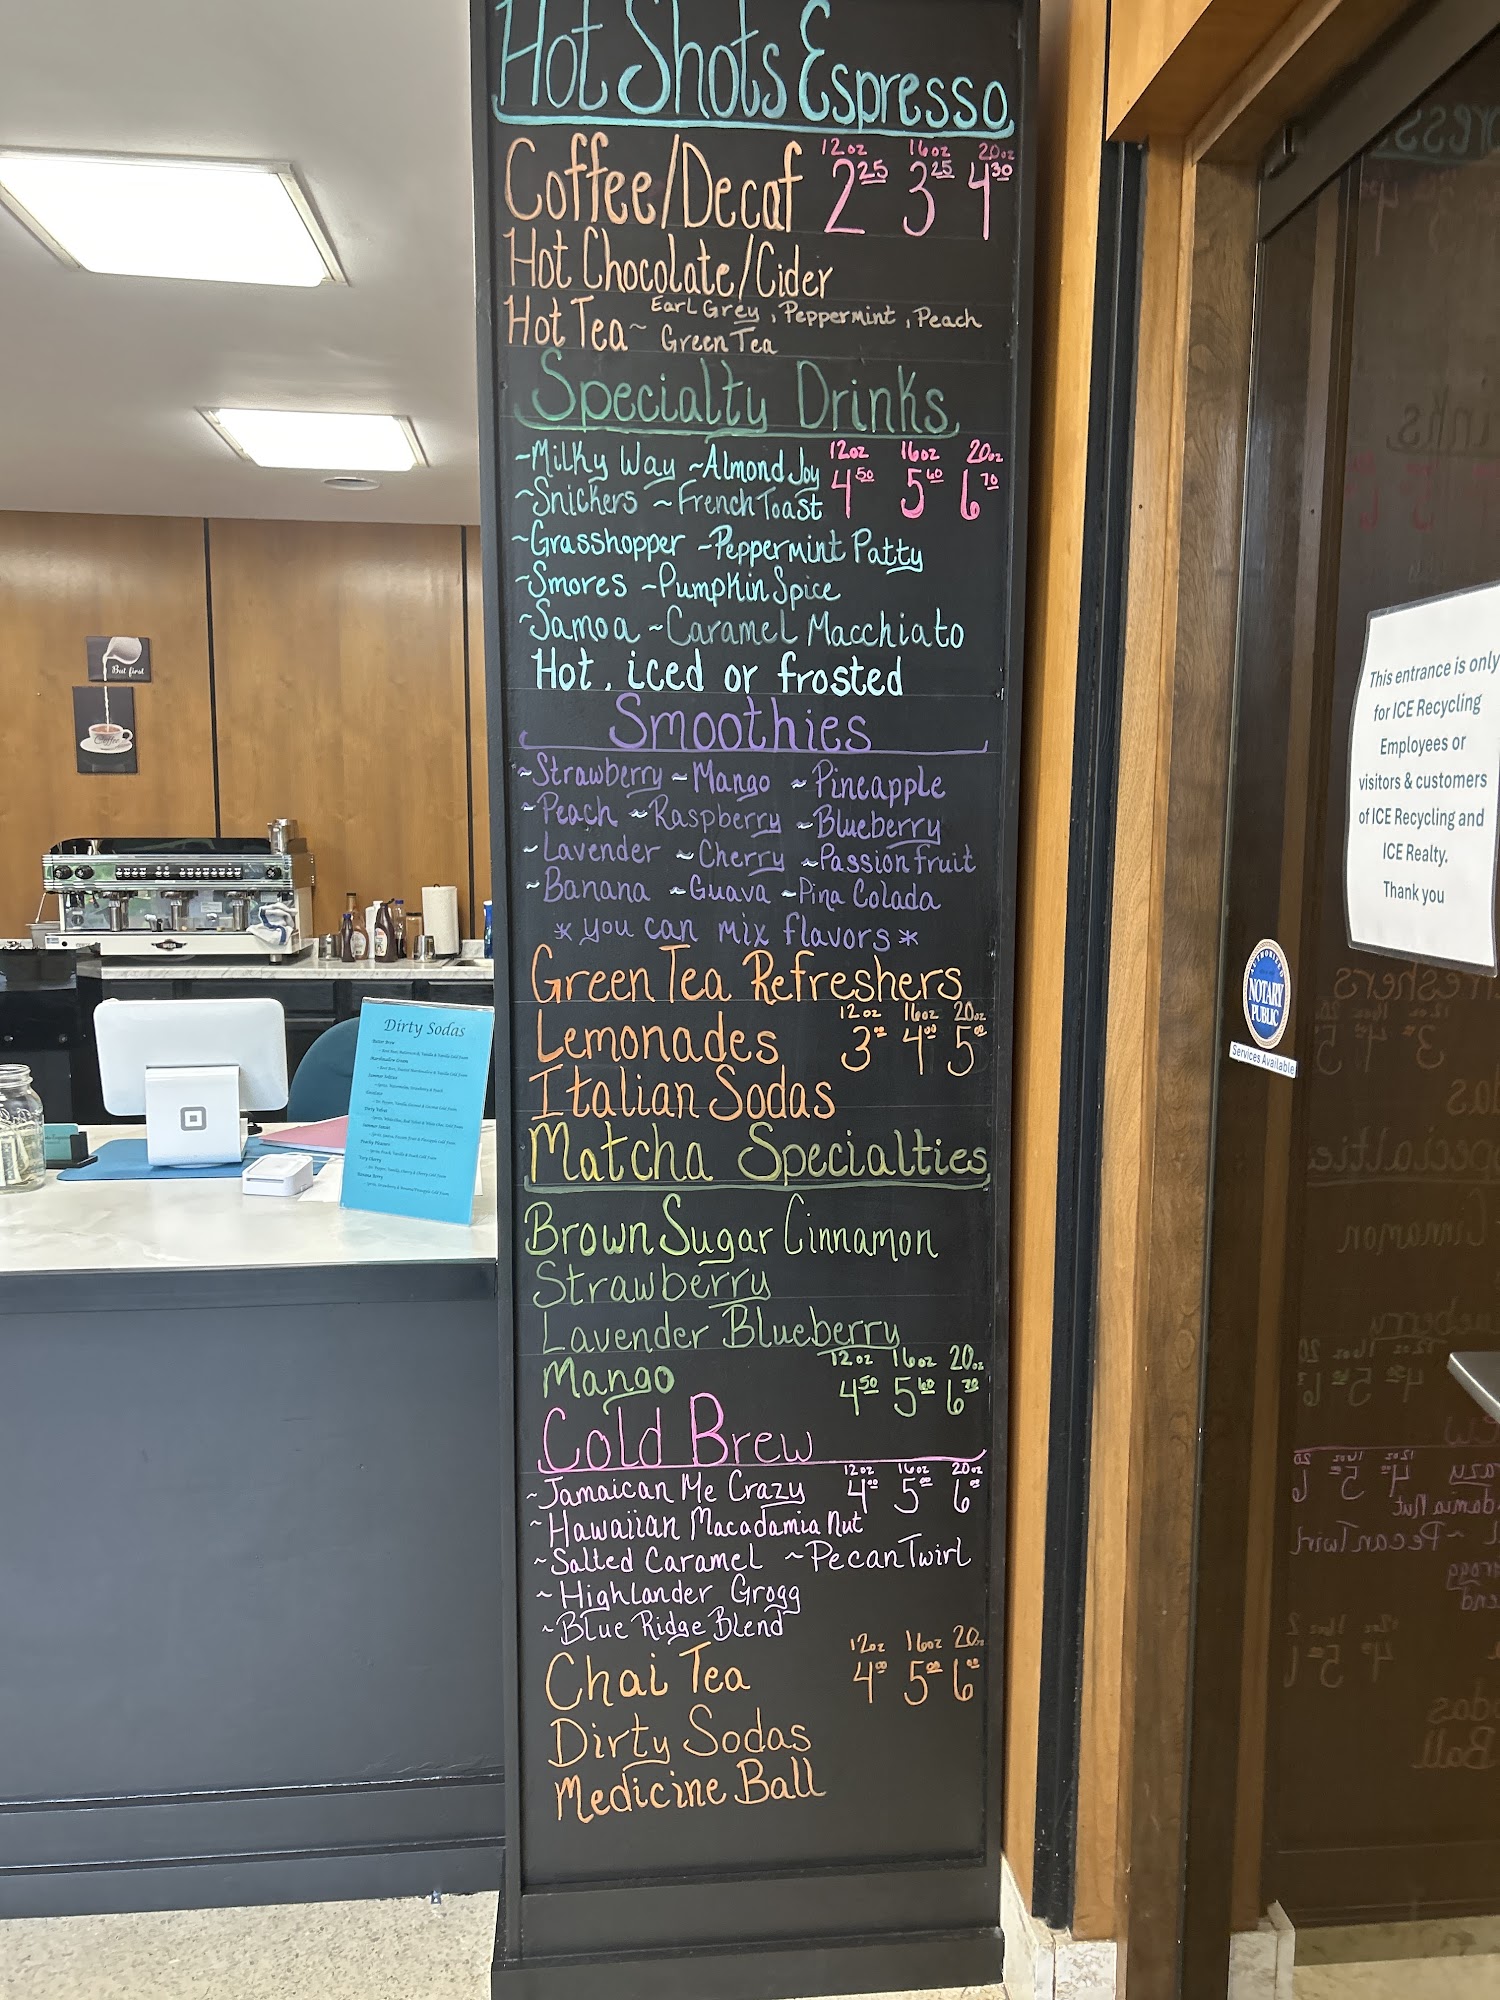 Hot Shots Espresso
12oz 16oz 20oz
Coffee/Decaf 2 25 3 25 4 30
Hot Chocolate/Cider
Hot Tea~ Earl Grey, Peppermint, Peach
Green Tea
Specialty Drinks
12oz 16oz 20oz
~Milky Way ~Almond Joy 4 50 5 60 6 70
~Snickers ~French Toast
~Grasshopper ~Peppermint Patty
~Smores ~Pumpkin Spice
~Samoa ~Caramel Macchiato
Hot, iced or frosted
Smoothies
~Strawberry ~Mango ~Pineapple
~Peach ~Raspberry ~Blueberry
~Lavender ~Cherry ~Passion fruit
~Banana ~Guava ~Pina Colada
*you can mix flavors*
Green Tea Refreshers
12oz 16oz 20oz
Lemonades 3 00 4 00 5 00
Italian Sodas
Matcha Specialties
Brown Sugar Cinnamon
Strawberry
Lavender Blueberry
12oz 16oz 20oz
Mango 4 50 5 60 6 70
Cold Brew
12oz 16oz 20oz
~Jamaican Me Crazy 4 00 5 00 6 00
~Hawaiian Macadamia Nut
~Salted Caramel ~Pecan Twirl
~Highlander Grogg
~Blue Ridge Blend
12oz 16oz 20oz
Chai Tea 4 00 5 00 6 00
Dirty Sodas
Medicine Ball
But first
Coffee
Dirty Sodas
This entrance is only
for ICE Recycling
Employees or
visitors & customers
of ICE Recycling and
ICE Realty.
Thank you
AUTHORIZED
NOTARY
PUBLIC
Services Available